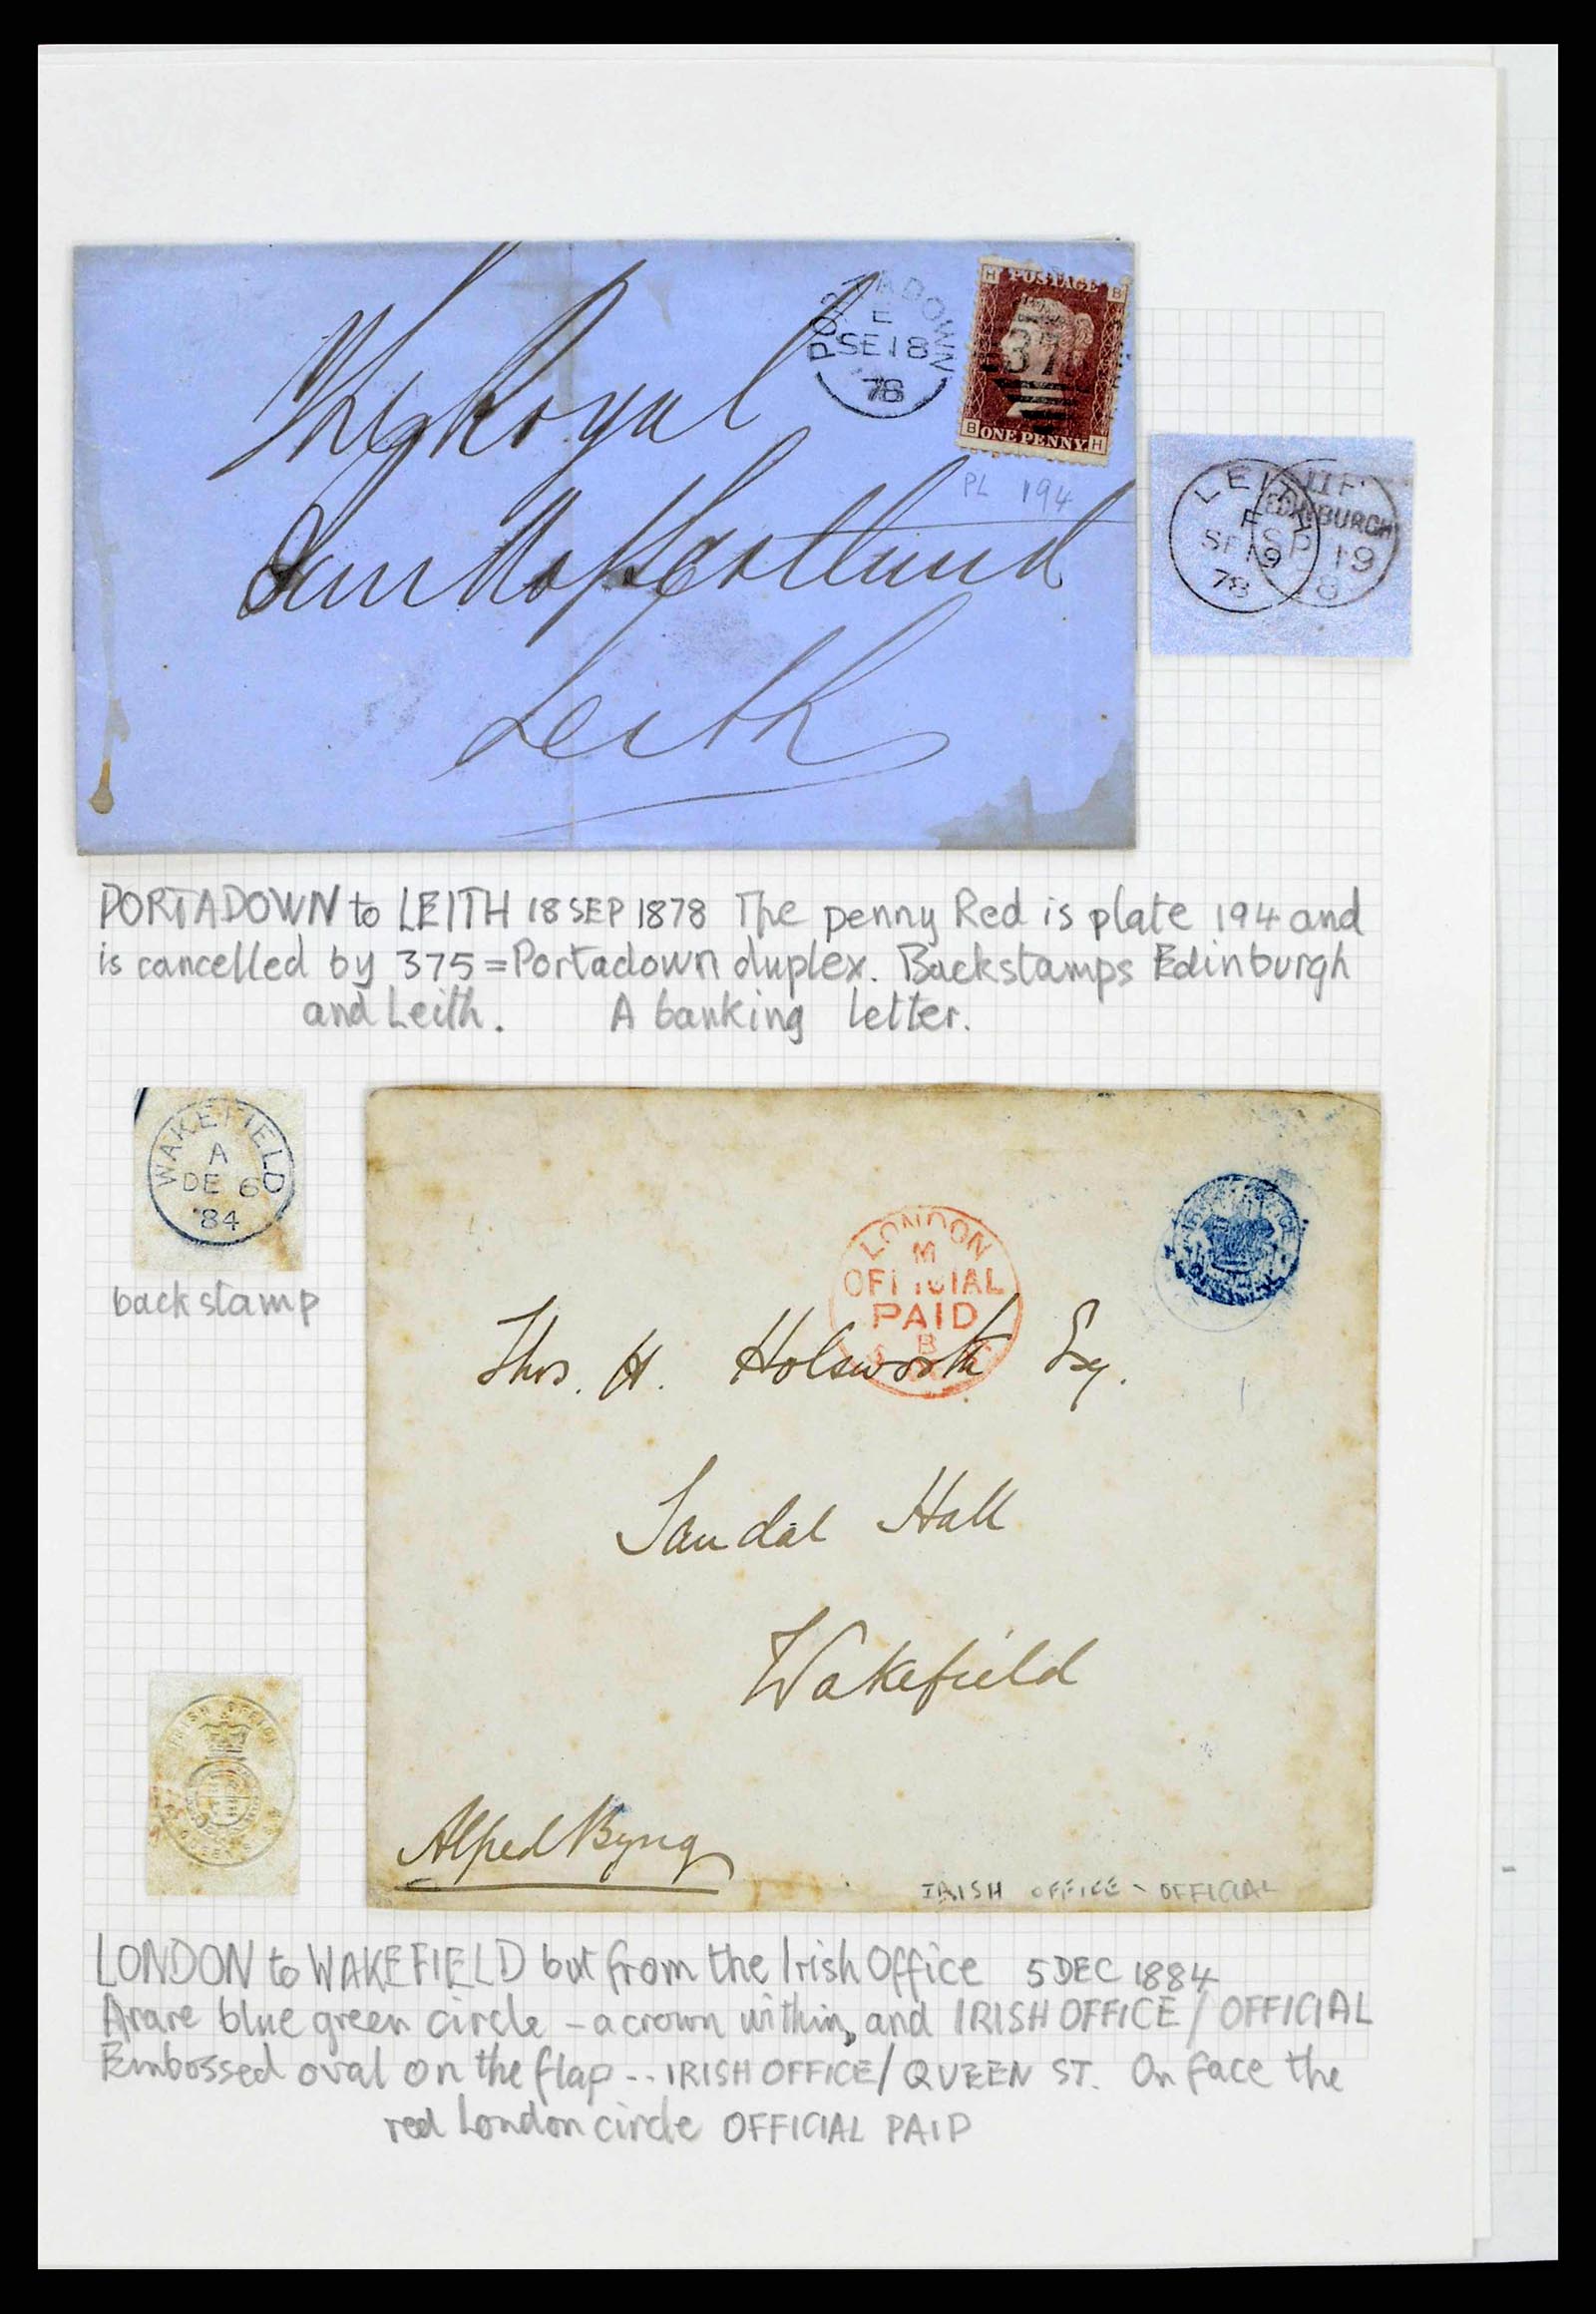 PORTADOWN
E
SE 18
78
H POSTAGE B
37
B ONE PENNY. H
The Royal
Bank of Scotland
Leith
PL 194
LEITH
F
SE 19
78
EDINBURGH
SP 19
78
PORTADOWN to LEITH 18 SEP 1878 The penny Red is plate 194 and
is cancelled by 375 = Portadown duplex. Backstamps Edinburgh
and Leith. A banking letter.
WAKEFIELD
A
DE 6
84
backstamp
LONDON
M
OFFICIAL
PAID
B
Thos. H. Holsworth Esq.
Sandal Hall
Wakefield
Alfred Byng
IRISH OFFICE - OFFICIAL
IRISH OFFICE
LONDON to WAKEFIELD but from the Irish Office 5 DEC 1884
A rare blue green circle - a crown within, and IRISH OFFICE / OFFICIAL
Embossed oval on the flap -- IRISH OFFICE / QUEEN ST. On face the
red London circle OFFICIAL PAID